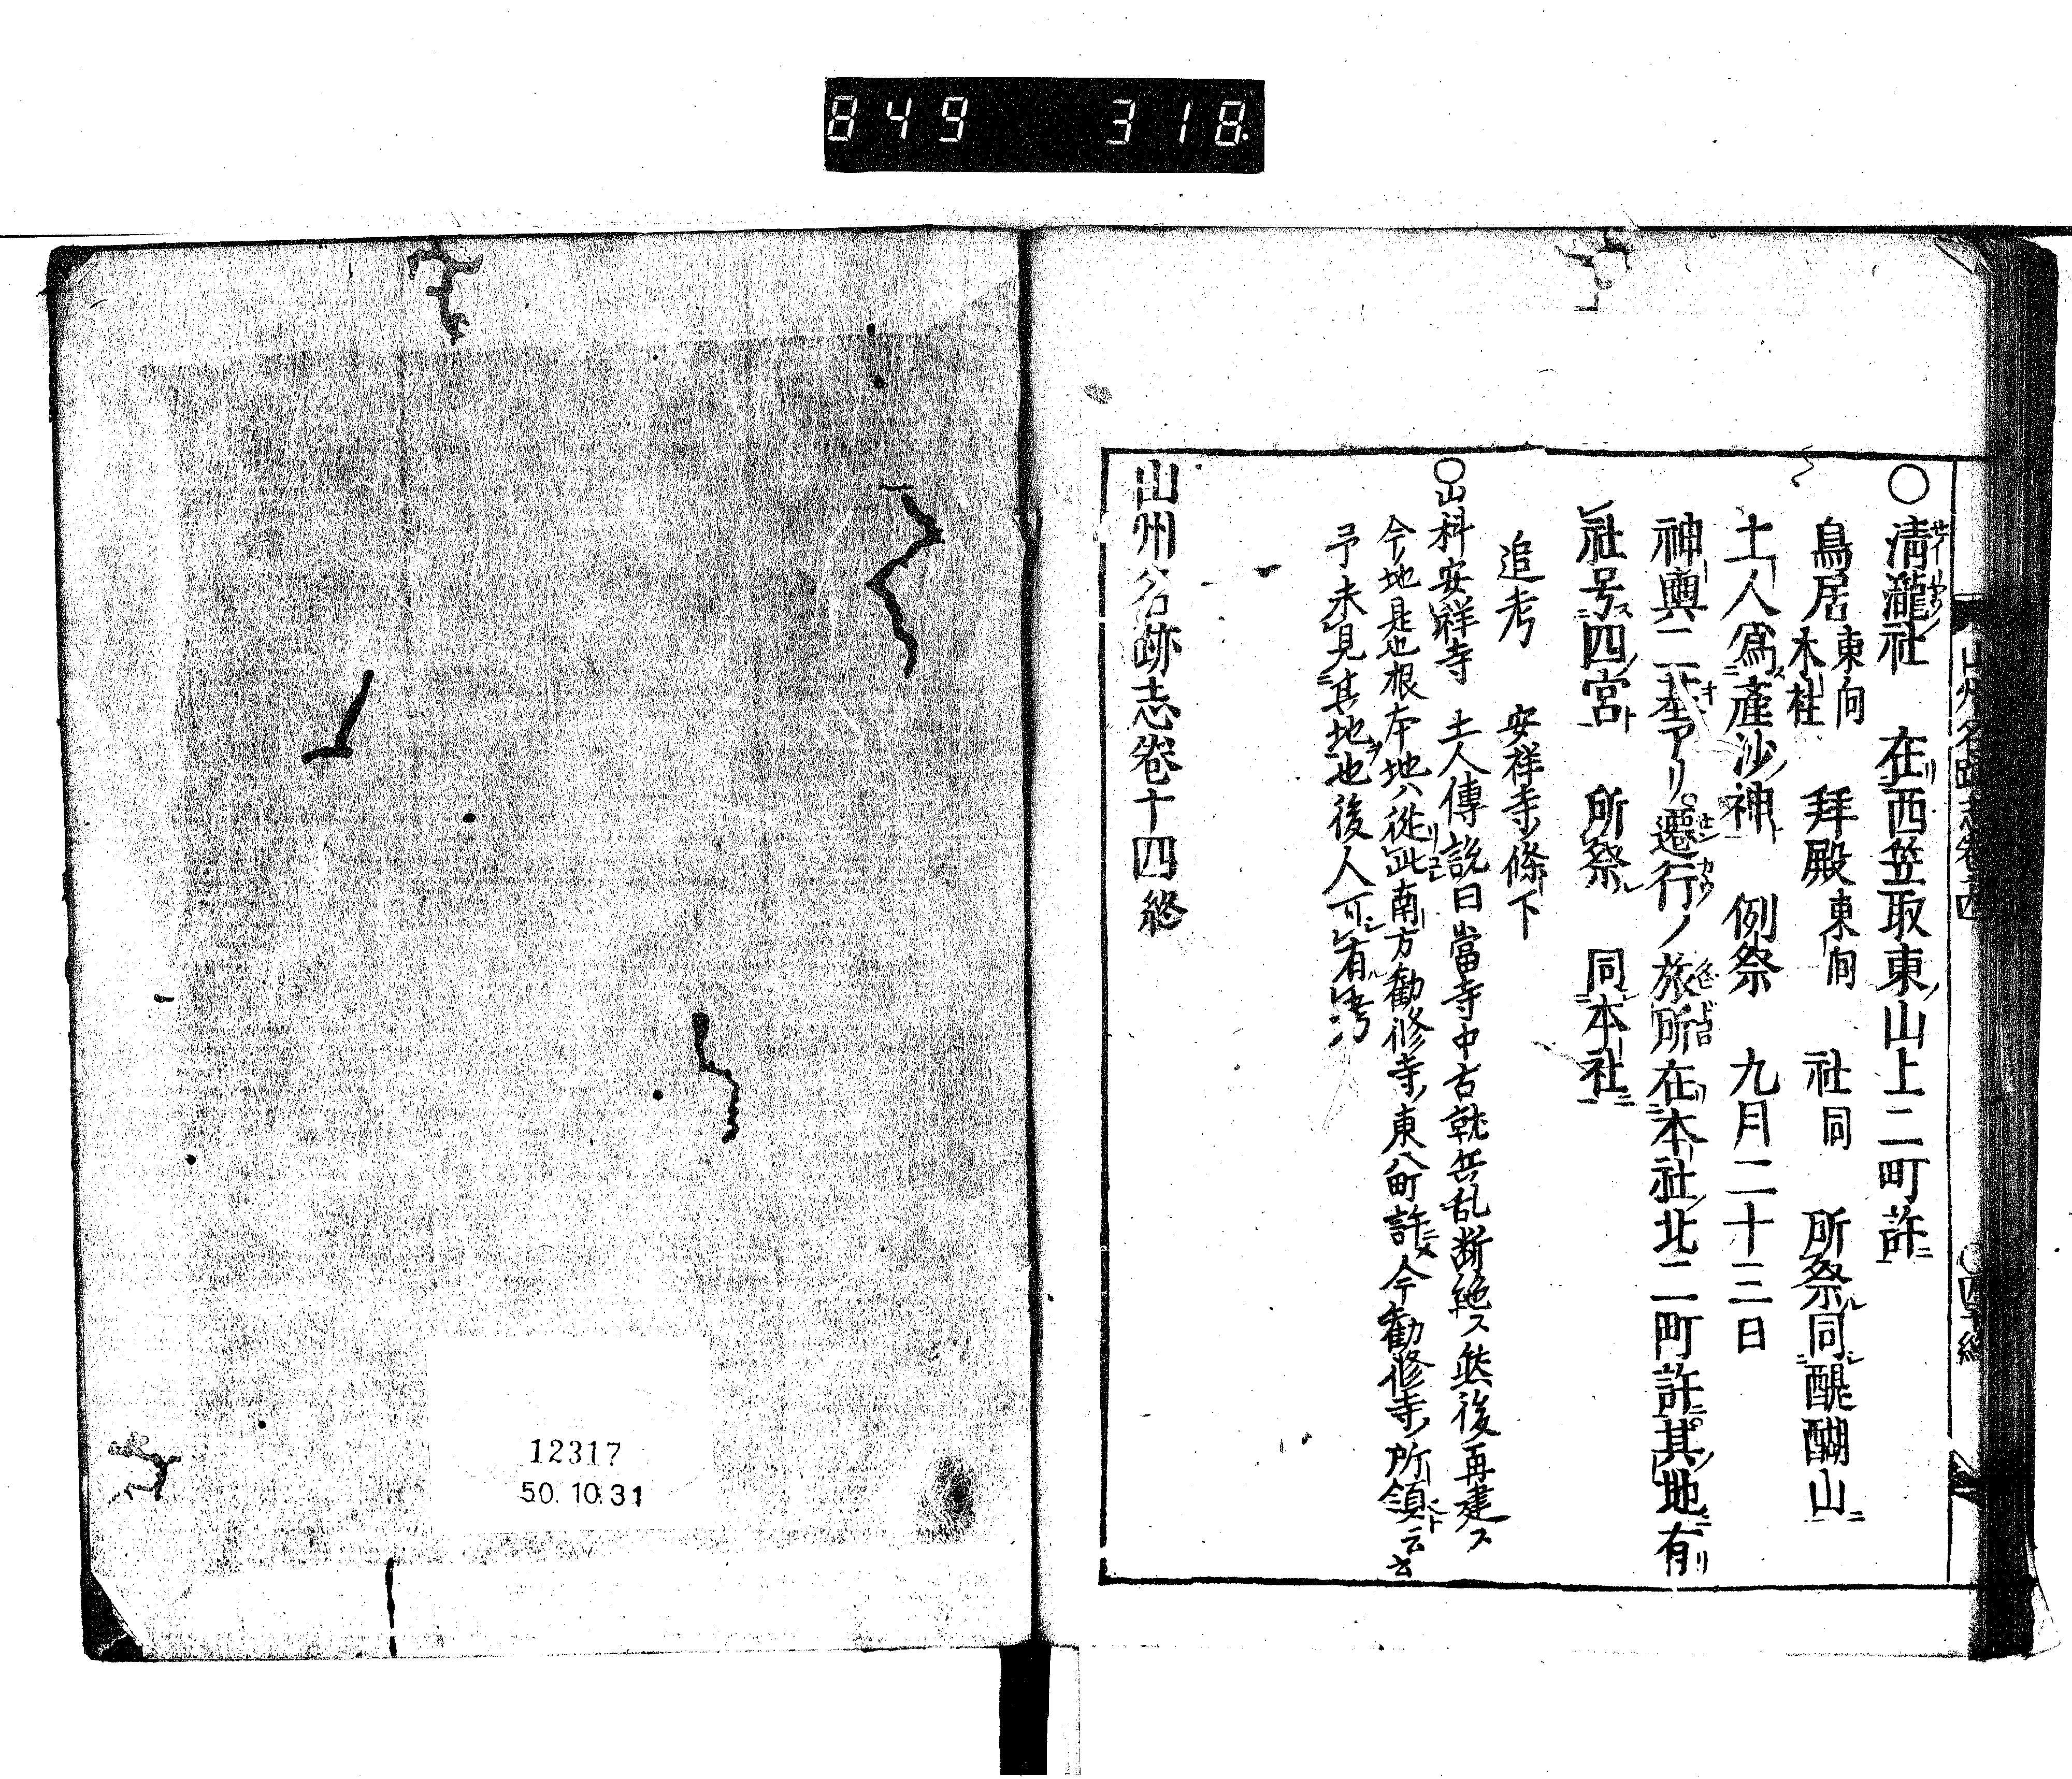 849 318
○清瀧社 在西笠取東山上二町許
鳥居 東向 木柱 拜殿 東向 社 同 所祭同醍醐山
土人為產沙神 例祭 九月二十三日
神輿二基アリ遷行ノ旅所在本社北二町許其地有
社号四宮 所祭 同本社
追考 安祥寺條下
○山科安祥寺 土人傳説曰當寺中古就兵乱断絶ス然後再建ス
今地是也根本地ハ從此南方勸修寺東八町許今勸修寺所領云云
予未見其地也後人可有考
山州名跡志卷十四終
12317
50.10.31